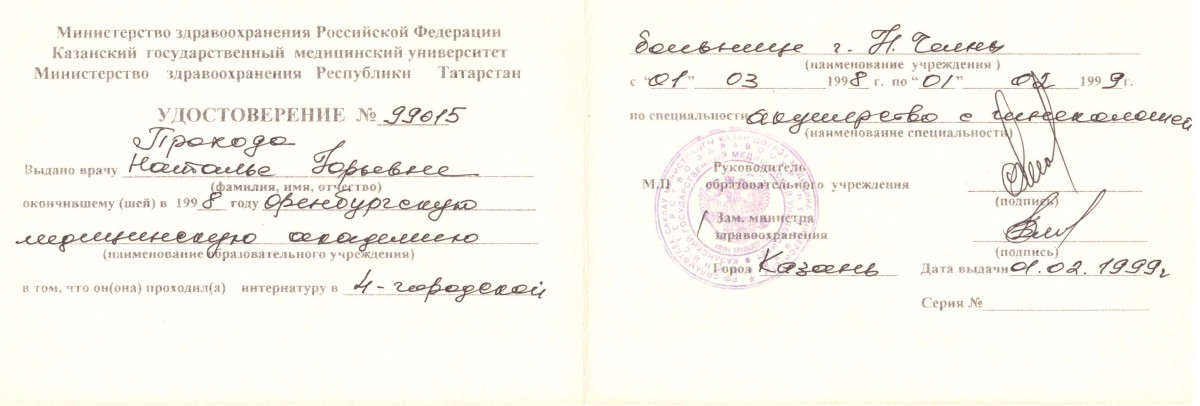 Министерство здравоохранения Российской Федерации
Казанский государственный медицинский университет
Министерство здравоохранения Республики Татарстан
УДОСТОВЕРЕНИЕ № 99015
Прокода
Выдано врачу Наталье Юрьевне
(фамилия, имя, отчество)
окончившему (шей) в 1998 году Оренбургскую
медицинскую академию
(наименование образовательного учреждения)
в том, что он(она) проходил(а) интернатуру в 4-городской
больнице г. Н. Челны
(наименование учреждения)
с “01” 03 1998 г. по “01” 02 1999 г.
по специальности акушерство с гинекологией
(наименование специальности)
Руководитель
М.П образовательного учреждения
(подпись)
Зам. министра
здравоохранения
(подпись)
Город Казань Дата выдачи 01.02.1999г
Серия №